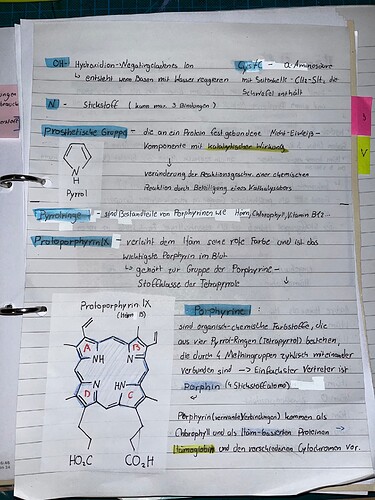 OH- Hydroxidion- Negativgeladenes Ion
↳ entsteht wenn Basen mit Wasser reagieren
Cystc - α-Aminosäure
mit Seitenkette -CH2-SH2 die
Schwefel enthält
N - Stickstoff (kann max. 3 Bindungen)
Prosthetische Gruppe - die an ein Protein festgebundene Nicht-Eiweiß-
Komponente mit katalytischer Wirkung
↓
veränderung der Reaktionsgeschw. einer chemischen
Reaktion durch Beteiligung eines Katalysators
N
H
Pyrrol
Pyrrolringe - sind Bestandteile von Porphyrinen wie Häm, Chlorophyll, Vitamin B12...
Protoporphyrin IX - verleiht dem Häm seine rote Farbe und ist das
wichtigste Porphyrin im Blut
↳ gehört zur Gruppe der Porphyrine-
Stoffklasse der Tetrapyrrole ↓
Protoporphyrin IX
(Häm B)
A B
NH N
N HN
D C
HO2C CO2H
Porphyrine :
sind organisch-chemische Farbstoffe, die
aus vier Pyrrol-Ringen (Tetrapyrrol) bestehen,
die durch 4 Methingruppen zyklisch miteinander
verbunden sind → Einfachster Vertreter ist
Porphin (4 Stickstoffatome)
Porphyrin (verwandte Verbindungen) kommen als
Chlorophyll und als Häm-basierten Proteinen →
Hämoglobin und den verschiedenen Cytochromen vor.
V